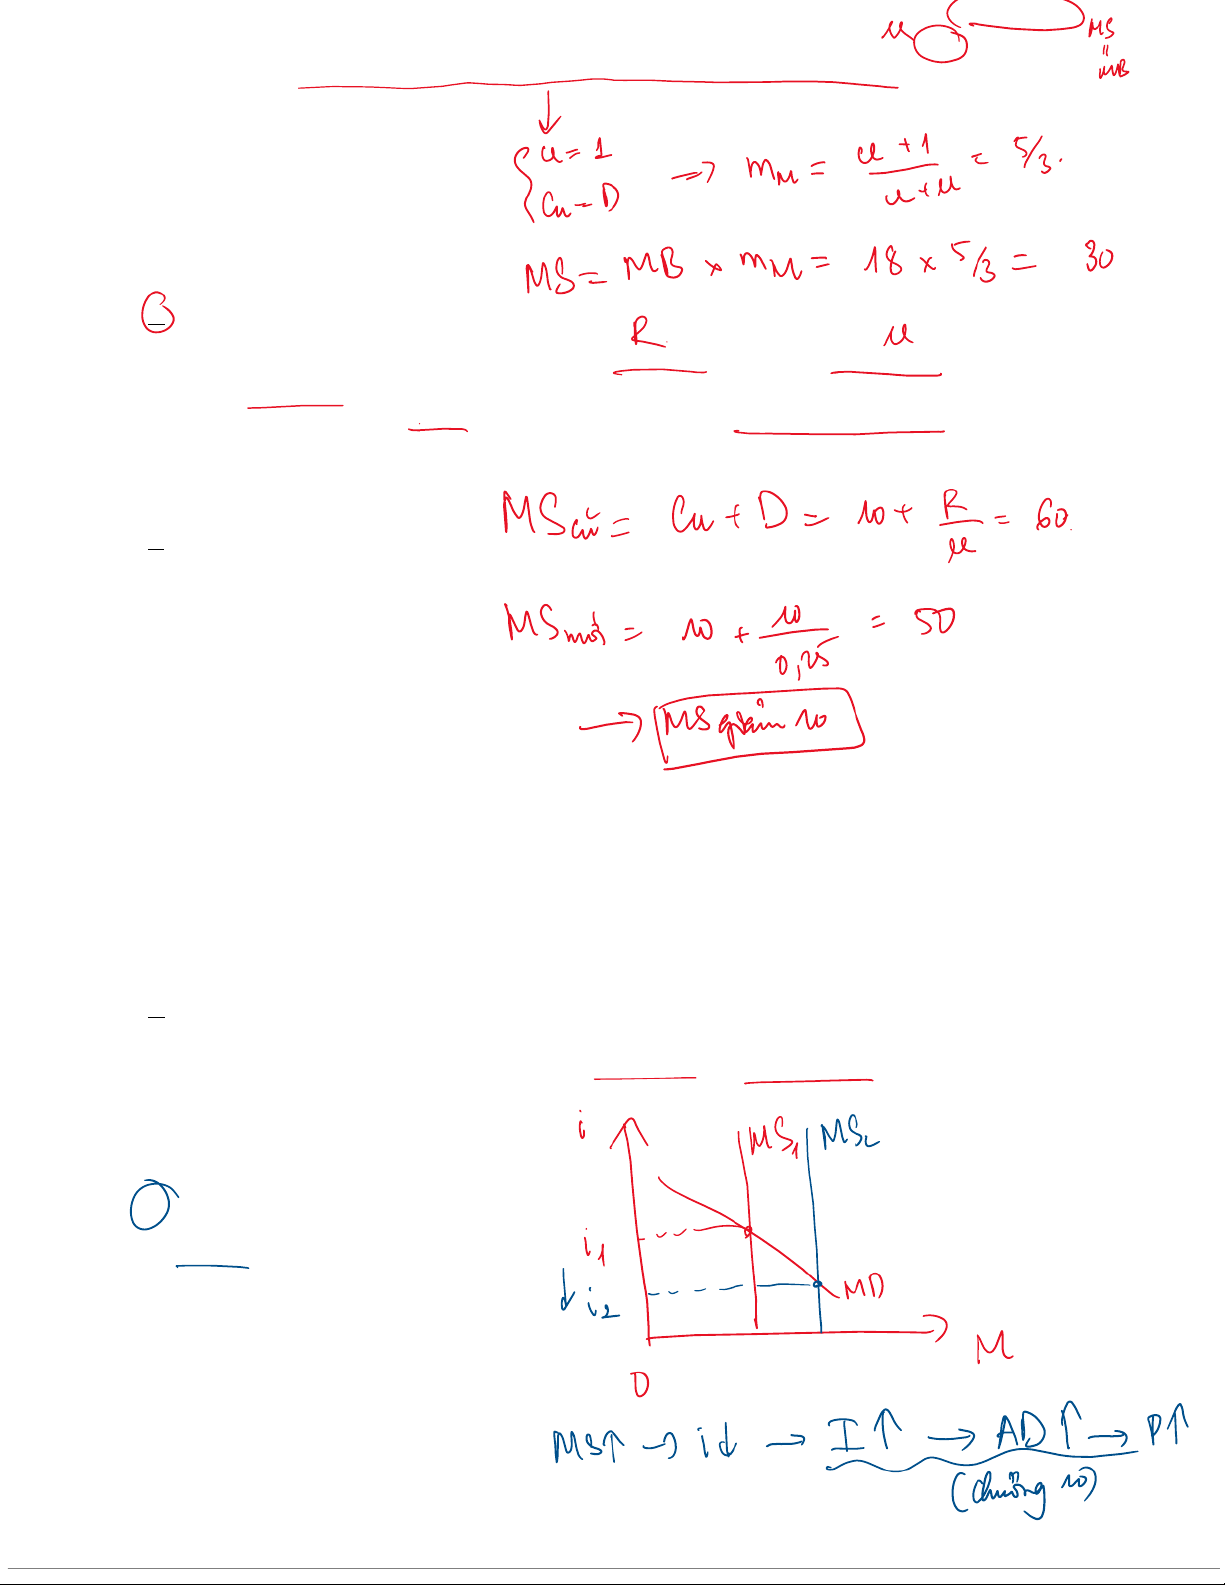 u
MS
=
MB
{u = 1
Cu = D
=> mM = u + 1 / u + u = 5/3.
MS = MB × mM = 18 × 5/3 = 30
B
R u
MS cũ = Cu + D = 10 + R/u = 60
MS mới = 10 + 10/0,25 = 50
→ MS giảm 10
i
MS1
MS2
i1
↓ i2
MD
M
0
MS↑ → i↓ → I↑ → AD↑ → P↑
(chương 10)